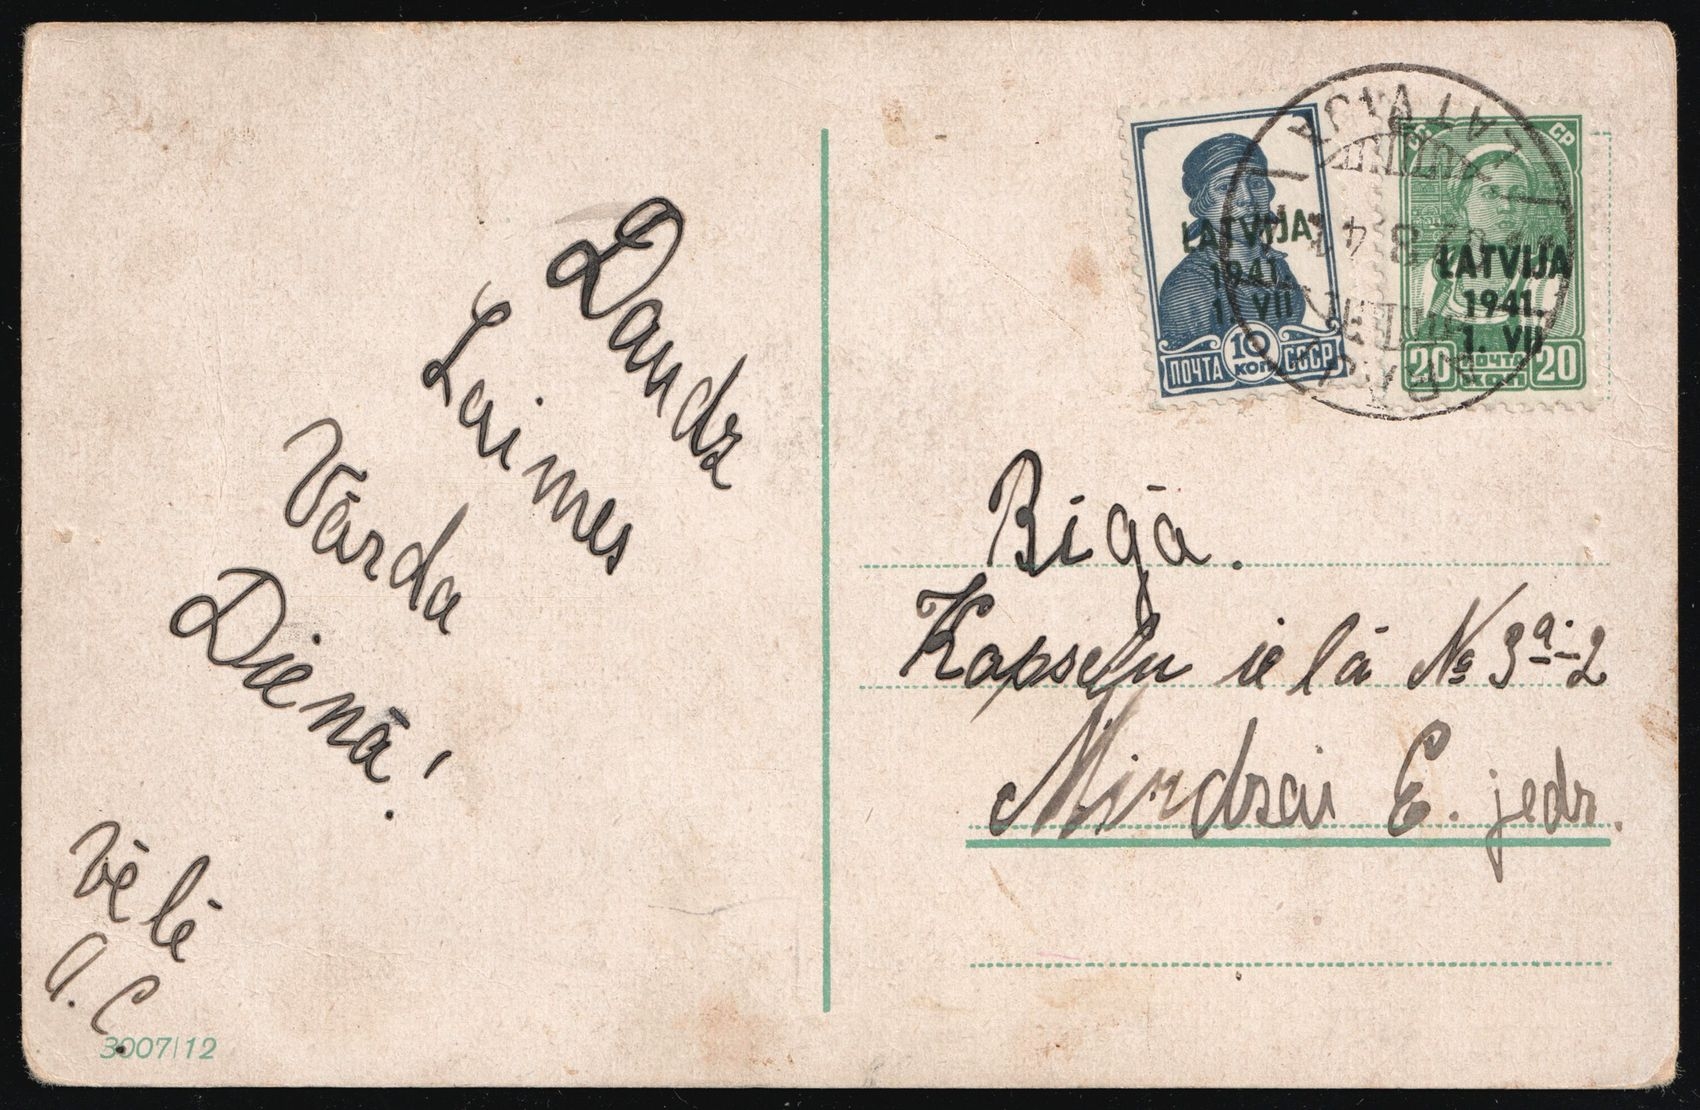 Daudz
Laimes
Vārda
Dienā!
vēlē
A. C.
3007/12
LATVIJA
1941.
1. VII
ПОЧТА 10 КОП. СССР
СР
LATVIJA
1941.
1. VII
20 ПОЧТА КОП 20
LATVIJA
8 4 1
Rīgā.
Kapseļu ielā № 3a-2
Mirdzai E. jedz.